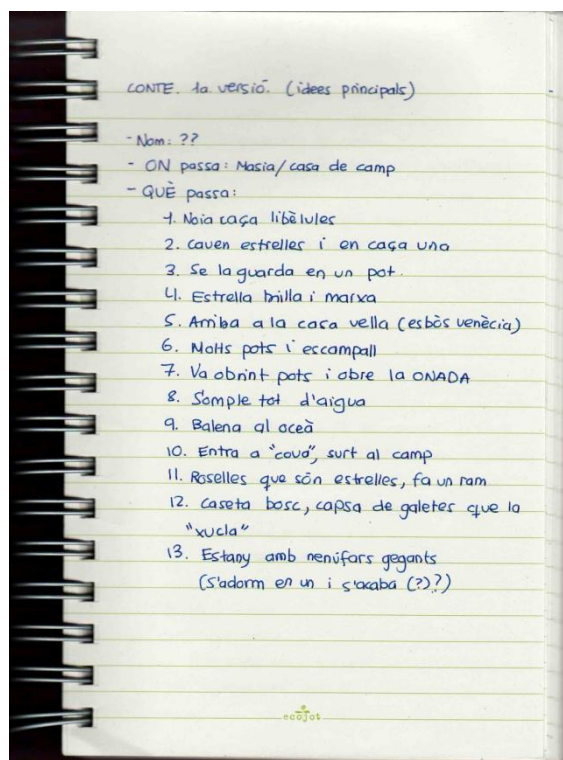 CONTE. 1a versió. (idees principals)
- Nom: ??
- ON passa: Masia/casa de camp
- QUÈ passa:
1. Noia caça libèlules
2. Cauen estrelles i en caça una
3. Se la guarda en un pot.
4. Estrella brilla i marxa
5. Arriba a la casa vella (esbòs venècia)
6. Molts pots i escampall
7. Va obrint pots i obre la ONADA
8. S'omple tot d'aigua
9. Balena al oceà
10. Entra a "cova", surt al camp
11. Roselles que són estrelles, fa un ram
12. Caseta bosc, capsa de galetes que la
"xucla"
13. Estany amb nenúfars gegants
(S'adorm en un i s'acaba (?)?)
ecojot